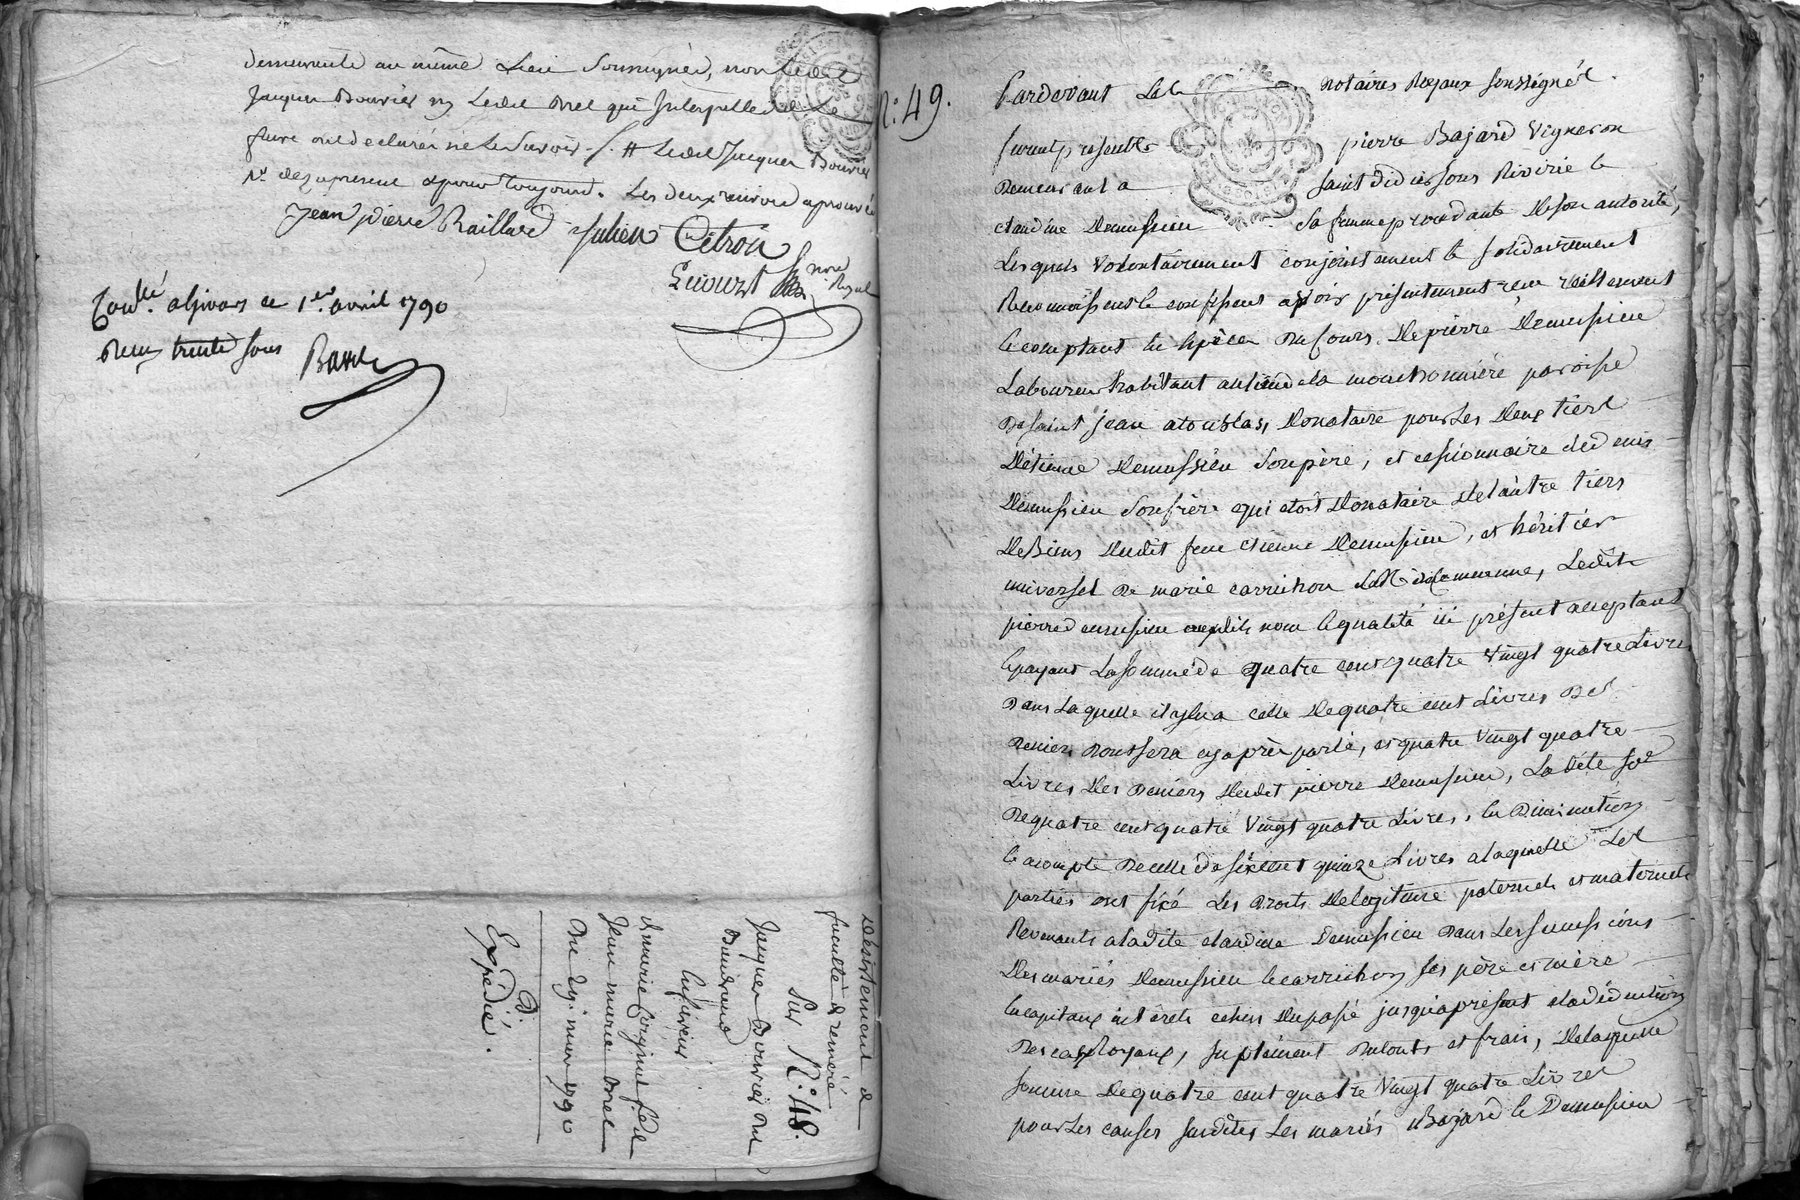 demeurante au même Lieu Soussignés, non Ledit
Jacques Bouvier ny Ledit Orel qui Interpellé de Le
faire ont declaré ne Le Savoir. # Ledit Jacques Bouvier
dez apresent et pour toujours. Les deux renvois aprouvés
Jean pierre Raillard Julien Citron
not.re Royal
Con.lé a Givors ce 1.er avril 1790
Reçu trente sous
Désistement de
faculté de remeré
Sur N.° 48.
Jacques Bouvier
En faveur
Jean marie Orel
Du 29. mars 1790
D.
Expédié.
N.° 49.
Pardevant Les notaires Royaux soussignés.
furent presents pierre Bajard Vigneron
Demeurant a Saint didier sous Riverie &
claudine Demussieu Sa femme procedante de son autorité,
Lesquels volontairement conjointement & solidairement
Reconnoissent & confessent avoir présentement reçu réellement
& comptant en espèces du cours de pierre Demussieu
Laboureur habitant au lieu de la mouchonnière paroisse
De saint jean atouslas, Donataire pour Les deux tiers
d'étienne Demussieu son père, et cessionnaire de denis
Demussieu son frère qui etoit Donataire de l'autre tiers
des Biens dudit feu etienne Demussieu, et héritier
universel de marie carrichon sa mère commune, Ledit
pierre demussieu auxdits nom & qualité ici présent acceptant
& payant La somme de quatre cent quatre vingt quatre Livres
Dans Laquelle il y en a celle de quatre cent Livres des
Deniers dont sera cy après parlé, et quatre vingt quatre
Livres des deniers dudit pierre Demussieu, La dite somme
De quatre cent quatre vingt quatre Livres, en diminution
& acompte de celle de six cent quinze Livres a laquelle Les
parties ont fixé Les Droits de legitime paternels et maternels
Revenants a ladite claudine Demussieu dans Les successions
des mariés Demussieu & carrichon ses père et mère
En capitaux intérêts echus du passé jusqu'a présent a la déduction
Des cas Royaux, suplément de lods et frais, de laquelle
somme de quatre cent quatre vingt quatre Livres
pour Les causes susdites Les mariés Bajard & Demussieu